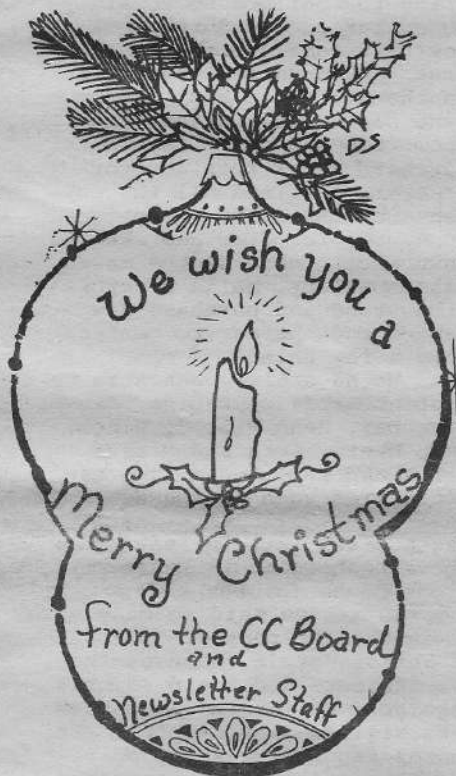 DS
We wish you a
Merry Christmas
from the CC Board
and
Newsletter Staff